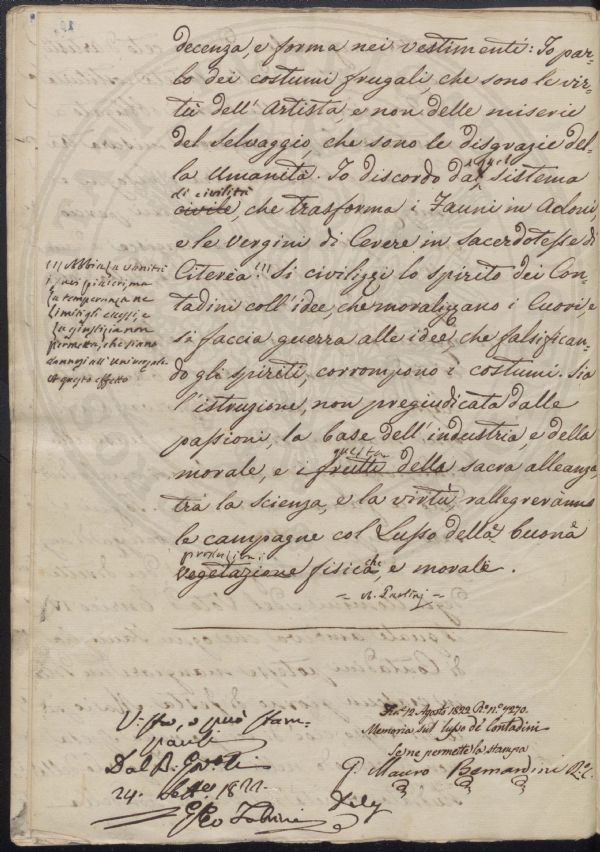 decenza, e forma nei vestimenti: Io par-
lo dei costumi frugali, che sono le vir-
tù dell' Artista, e non delle miserie
del selvaggio, che sono le disgrazie del-
la Umanità. Io discordo dal quel sistema
di civiltà
civile, che trasforma i Fauni in Adoni,
e le Vergini di Cerere in sacerdotesse di
Citerea!!! Si civilizzi lo spirito dei Con-
tadini coll' idee, che moralizzano i Cuori, e
si faccia guerra alle idee, che falsifican-
do gli spiriti, corrompono i costumi. Sia
l'istruzione, non pregiudicata dalle
passioni, la base dell' industria, e della
morale, e i frutti della sacra alleanza
questa
tra la scienza, e la virtù, rallegreranno
le campagne col Lusso della buona
vegetazione fisica, e morale.
la temperanza ne
limiti gli eccessi, e
la giustizia non
permetta, che siano
dannosi all' Universale.
questo effetto
Visto, si può stam-
24. 1822
12 Agosto 1822 n.° 4270.
Memoria sul lusso de' Contadini
Se ne permette la stampa
Mauro Bernardini